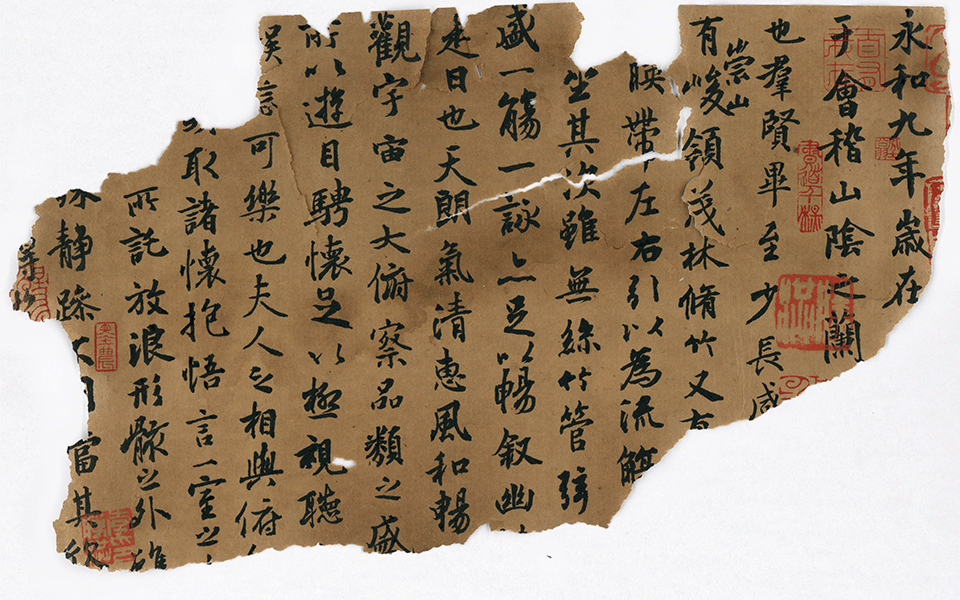 永和九年歲在
于會稽山陰之蘭
也羣賢畢至少長咸
有崇山峻領茂林脩竹又有
暎帶左右引以為流觴
坐其次雖無絲竹管弦
盛一觴一詠亦足以暢叙幽
是日也天朗氣清惠風和暢
觀宇宙之大俯察品類之盛
所以遊目騁懷足以極視聽
娛信可樂也夫人之相與俯
或取諸懷抱悟言一室之
所託放浪形骸之外雖
殊靜躁不同當其欣